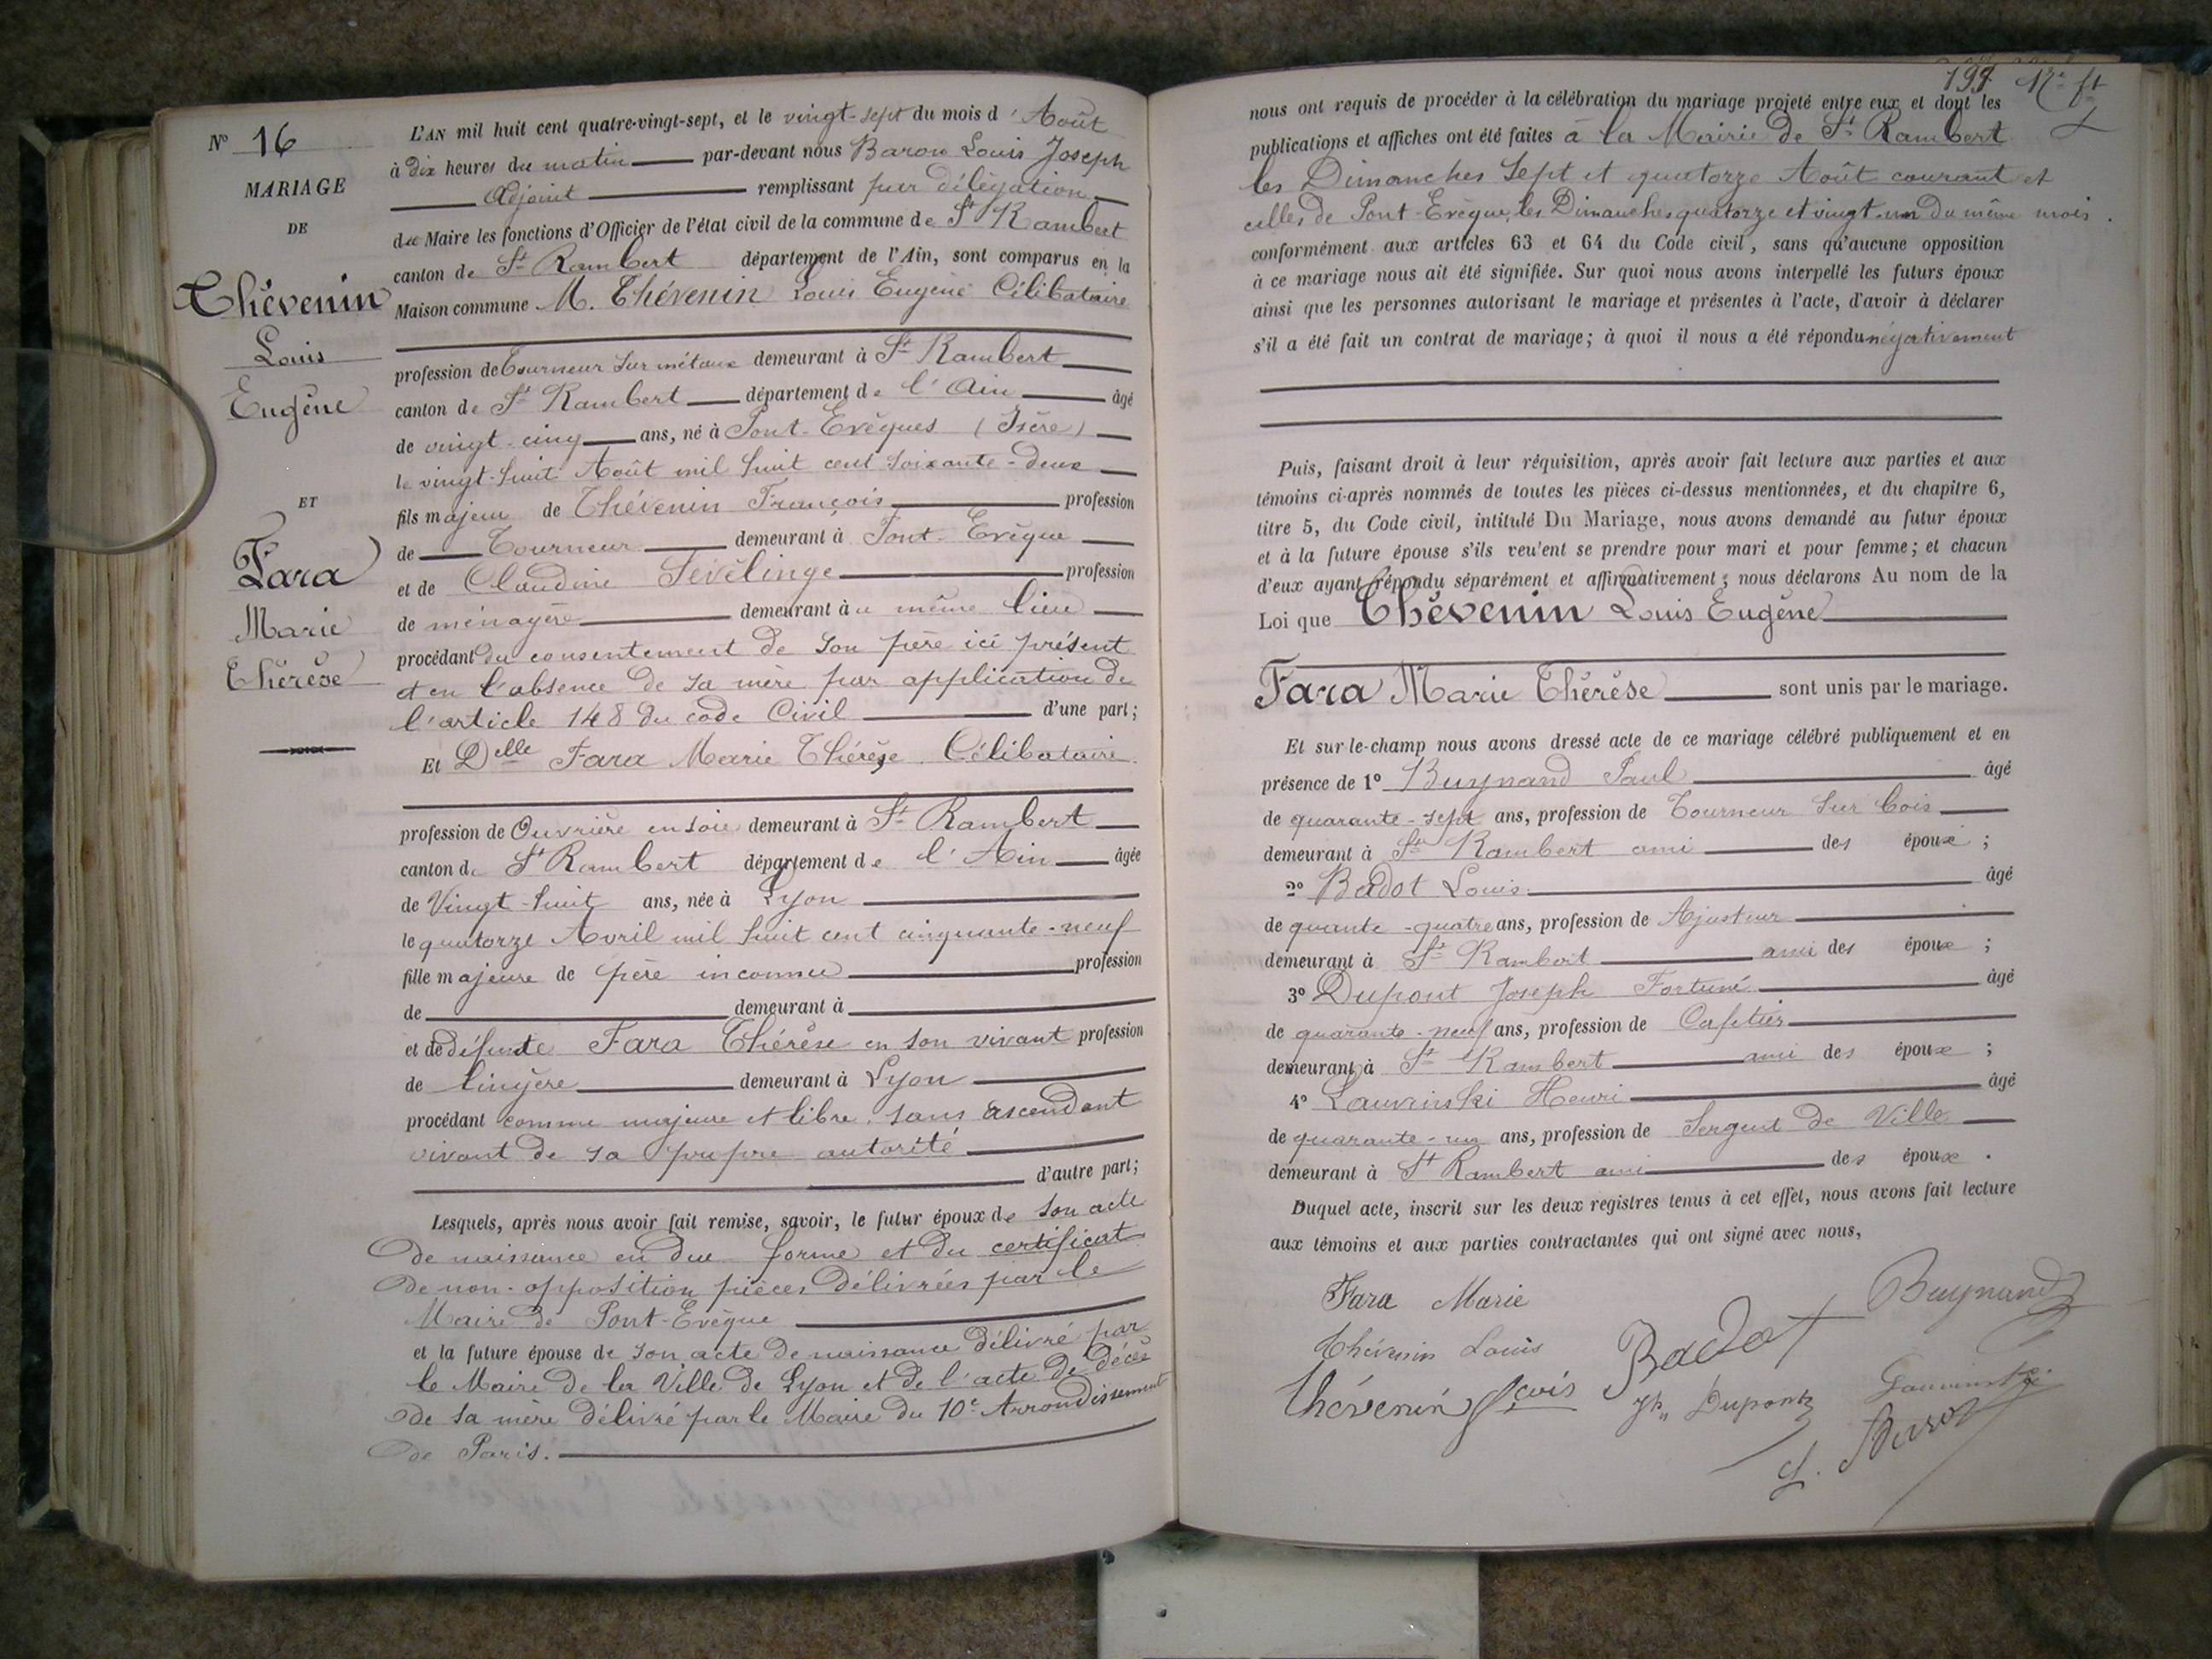 N° 16
MARIAGE
DE
Thévenin
Louis
Eugène
ET
Fara
Marie
Thérèse
L'AN mil huit cent quatre-vingt-sept, et le vingt-sept du mois d'Août
à dix heures du matin par-devant nous Baron Louis Joseph
Adjoint remplissant par délégation
du Maire les fonctions d'Officier de l'état civil de la commune de St Rambert
canton de St Rambert département de l'Ain, sont comparus en la
Maison commune M. Thévenin Louis Eugène Célibataire
profession de Tourneur sur métaux demeurant à St Rambert
canton de St Rambert département de l'Ain âgé
de vingt-cinq ans, né à Pont-Evêques (Isère)
le vingt-huit Août mil huit cent soixante-deux
fils majeur de Thévenin François profession
de Tourneur demeurant à Pont-Evêque
et de Claudine Sevèlinge profession
de ménagère demeurant àu même lieu
procédant du consentement de son père ici présent
et en l'absence de sa mère par application de
l'article 148 du code Civil d'une part;
Et Delle Fara Marie Thérèse Célibataire
profession de Ouvrière en soie demeurant à St Rambert
canton de St Rambert département de l'Ain âgée
de Vingt-huit ans, née à Lyon
le quatorze Avril mil huit cent cinquante-neuf
fille majeure de père inconnu profession
de demeurant à
et de défunte Fara Thérèse en son vivant profession
de lingère demeurant à Lyon
procédant comme majeure et libre, sans ascendant
vivant de sa propre autorité
d'autre part;
Lesquels, après nous avoir fait remise, savoir, le futur époux de son acte
de naissance en due forme et du certificat
de non-opposition pièces délivrées par le
Maire de Pont-Evêque
et la future épouse de son acte de naissance délivré par
le Maire de la Ville de Lyon et de l'acte de décès
de sa mère délivré par le Maire du 10e Arrondissement
de Paris.
nous ont requis de procéder à la célébration du mariage projeté entre eux et dont les
publications et affiches ont été faites à la Mairie de St Rambert
les Dimanches Sept et quatorze Août courant et
celles de Pont-Evêque, les Dimanches quatorze et vingt-un du même mois.
conformément aux articles 63 et 64 du Code civil, sans qu'aucune opposition
à ce mariage nous ait été signifiée. Sur quoi nous avons interpellé les futurs époux
ainsi que les personnes autorisant le mariage et présentes à l'acte, d'avoir à déclarer
s'il a été fait un contrat de mariage; à quoi il nous a été répondu négativement
Puis, faisant droit à leur réquisition, après avoir fait lecture aux parties et aux
témoins ci-après nommés de toutes les pièces ci-dessus mentionnées, et du chapitre 6,
titre 5, du Code civil, intitulé Du Mariage, nous avons demandé au futur époux
et à la future épouse s'ils veulent se prendre pour mari et pour femme; et chacun
d'eux ayant répondu séparément et affirmativement; nous déclarons Au nom de la
Loi que Thévenin Louis Eugène
Fara Marie Thérèse sont unis par le mariage.
Et sur-le-champ nous avons dressé acte de ce mariage célébré publiquement et en
présence de 1° Buynand Paul âgé
de quarante-sept ans, profession de Tourneur sur bois
demeurant à St Rambert ami des époux;
2° Badot Louis âgé
de quante-quatre ans, profession de Ajusteur
demeurant à St Rambert ami des époux;
3° Dupont Joseph Fortuné âgé
de quarante-neuf ans, profession de Cafetier
demeurant à St Rambert ami des époux;
4° Lauvinski Henri âgé
de quarante-un ans, profession de Sergent de Ville
demeurant à St Rambert ami des époux.
Duquel acte, inscrit sur les deux registres tenus à cet effet, nous avons fait lecture
aux témoins et aux parties contractantes qui ont signé avec nous,
Fara Marie
Buynand
Thévenin Louis
Badot
Thévenin fçois
Jh Dupont
Lauvinski
L. Baron